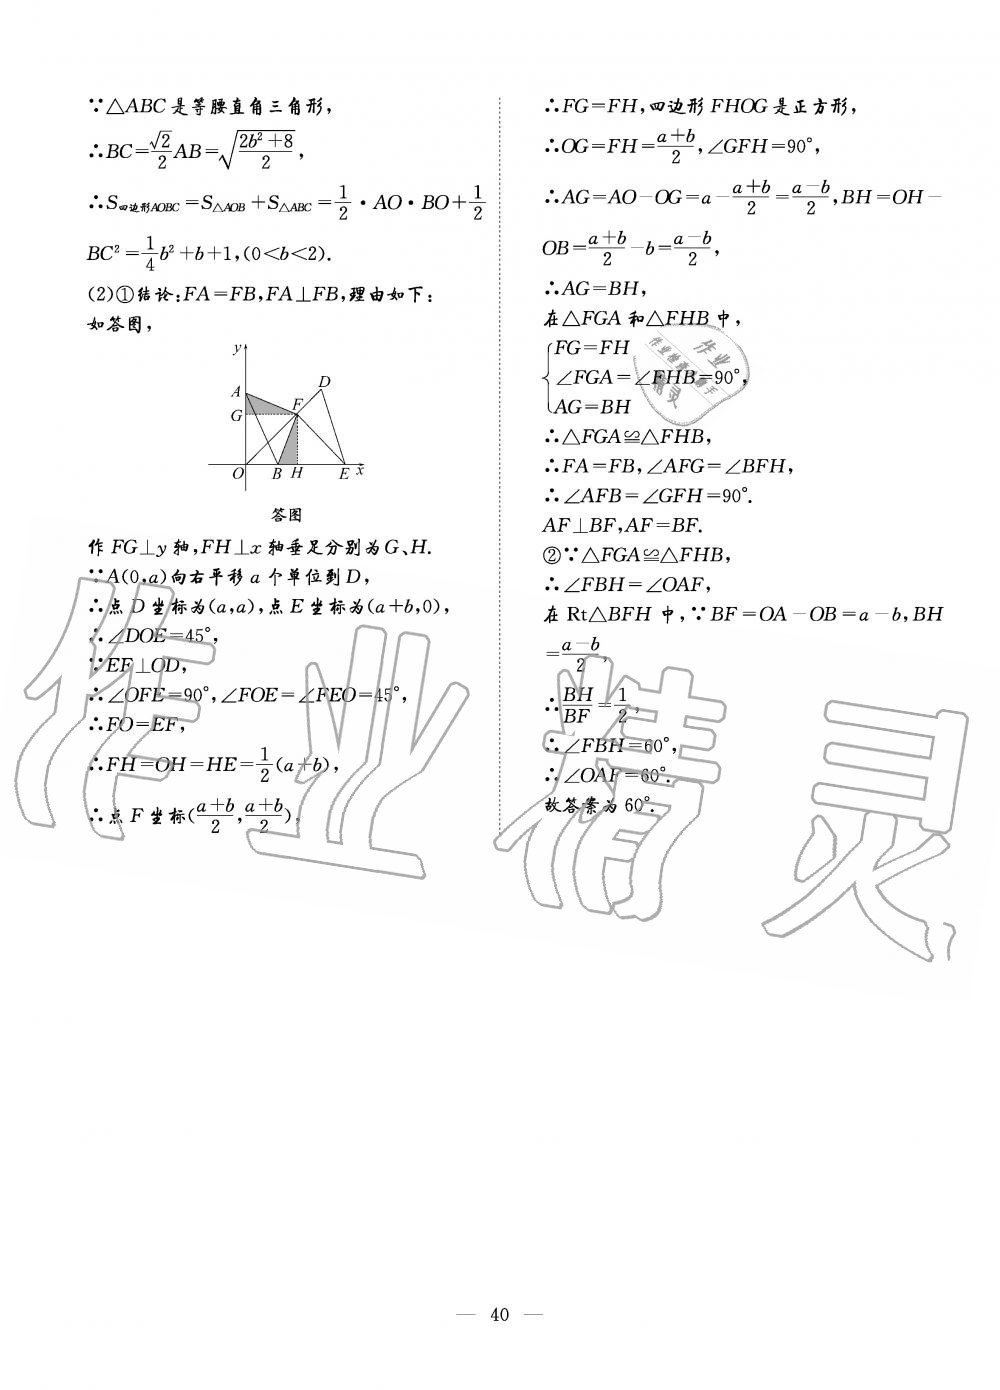 ∵△ABC是等腰直角三角形，
∴BC=√2/2 AB=√((2b²+8)/2)，
∴S四边形AOBC=S△AOB+S△ABC=1/2·AO·BO+1/2
BC²=1/4b²+b+1，(0<b<2)．
(2)①结论：FA=FB，FA⊥FB，理由如下：
如答图，
y
A
D
F
G
O B H E x
答图
作FG⊥y轴，FH⊥x轴垂足分别为G、H．
∵A(0,a)向右平移a个单位到D，
∴点D坐标为(a,a)，点E坐标为(a+b,0)，
∴∠DOE=45°，
∵EF⊥OD，
∴∠OFE=90°，∠FOE=∠FEO=45°，
∴FO=EF，
∴FH=OH=HE=1/2(a+b)，
∴点F坐标((a+b)/2，(a+b)/2)，
∴FG=FH，四边形FHOG是正方形，
∴OG=FH=(a+b)/2，∠GFH=90°，
∴AG=AO-OG=a-(a+b)/2=(a-b)/2，BH=OH-
OB=(a+b)/2-b=(a-b)/2，
∴AG=BH，
在△FGA和△FHB中，
{FG=FH
∠FGA=∠FHB=90°，
AG=BH
∴△FGA≌△FHB，
∴FA=FB，∠AFG=∠BFH，
∴∠AFB=∠GFH=90°．
AF⊥BF，AF=BF．
②∵△FGA≌△FHB，
∴∠FBH=∠OAF，
在Rt△BFH中，∵BF=OA-OB=a-b，BH
=(a-b)/2，
∴BH/BF=1/2，
∴∠FBH=60°，
∴∠OAF=60°．
故答案为60°．
作业精灵
— 40 —